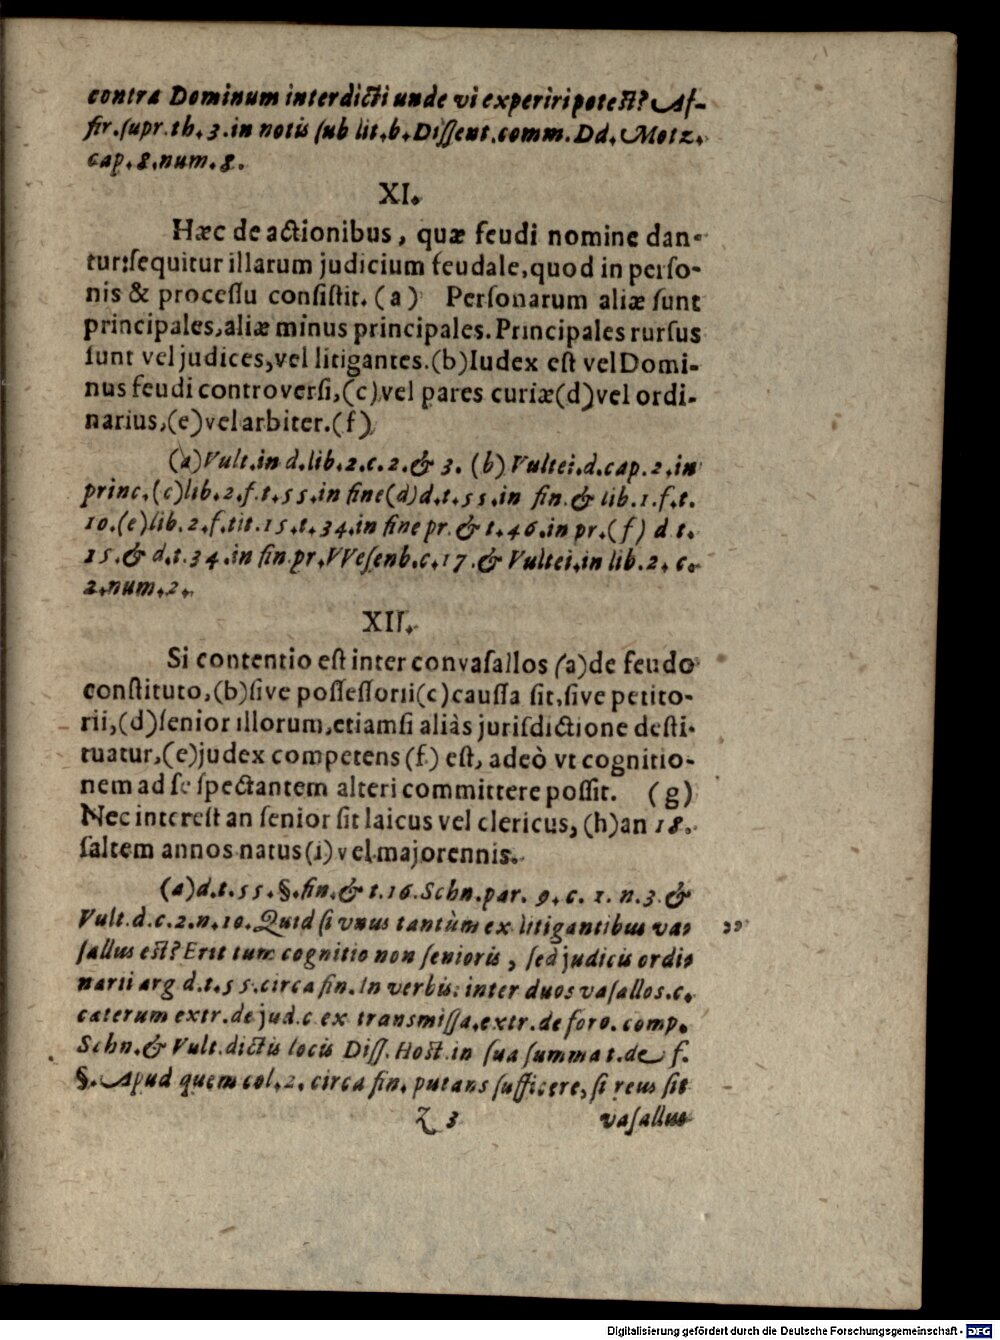 contra Dominum interdicti unde vi experiri potest? Af-
fir. supr. th. 3. in notis sub lit. b. Dissent. comm. Dd. Motz.
cap. 8. num. 8.
XI.
Hæc de actionibus, quæ feudi nomine dan-
tur: sequitur illarum judicium feudale, quod in perso-
nis & processu consistit. (a) Personarum aliæ sunt
principales, aliæ minus principales. Principales rursus
sunt vel judices, vel litigantes. (b) Iudex est vel Domi-
nus feudi controversi, (c) vel pares curiæ (d) vel ordi-
narius, (e) vel arbiter. (f)
(a) Vult. in d. lib. 2. c. 2. & 3. (b) Vultei. d. cap. 2. in
princ. (c) lib. 2. f. t. 55. in fine (d) d. t. 55. in fin. & lib. 1. f. t.
10. (e) lib. 2. f. tit. 15. t. 34. in fine pr. & t. 46. in pr. (f) d t.
15. & d. t. 34. in fin. pr. VVesenb. c. 17. & Vultei. in lib. 2. c.
2. num. 2.
XII.
Si contentio est inter convasallos (a) de feudo
constituto, (b) sive possessorii (c) caussa sit, sive petito-
rii, (d) senior illorum, etiamsi aliàs jurisdictione desti-
tuatur, (e) judex competens (f) est, adeò vt cognitio-
nem ad se spectantem alteri committere possit. (g)
Nec interest an senior sit laicus vel clericus, (h) an 18.
saltem annos natus (i) vel majorennis.
(a) d. t. 55. §. fin. & t. 16. Schn. par. 9. c. 1. n. 3. &
Vult. d. c. 2. n. 10. Quid si vnus tantùm ex litigantibus va-
sallus est? Erit tum cognitio non senioris, sed judicis ordi-
narii arg d. t. 55. circa fin. in verbis: inter duos vasallos. c.
caterum extr. de jud. c ex transmissa. extr. de foro. comp.
Schn. & Vult. dictis locis Diss. Host. in sua summa t. de f.
§. Apud quem col. 2. circa fin. putans sufficere, si reus sit
Z 3 vasallus
Digitalisierung gefördert durch die Deutsche Forschungsgemeinschaft - DFG